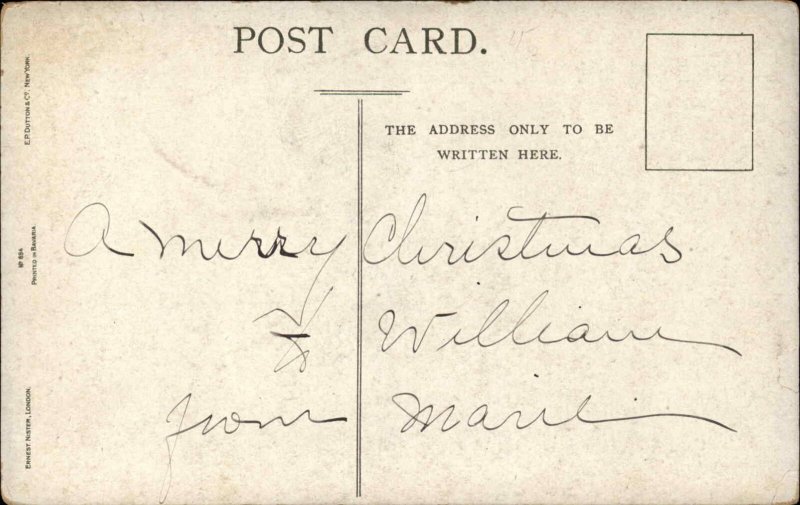 POST CARD.
THE ADDRESS ONLY TO BE
WRITTEN HERE.
A merry Christmas
to William
from Marie
E.P. DUTTON & Co. NEW YORK.
No 894
PRINTED IN BAVARIA.
ERNEST NISTER, LONDON.